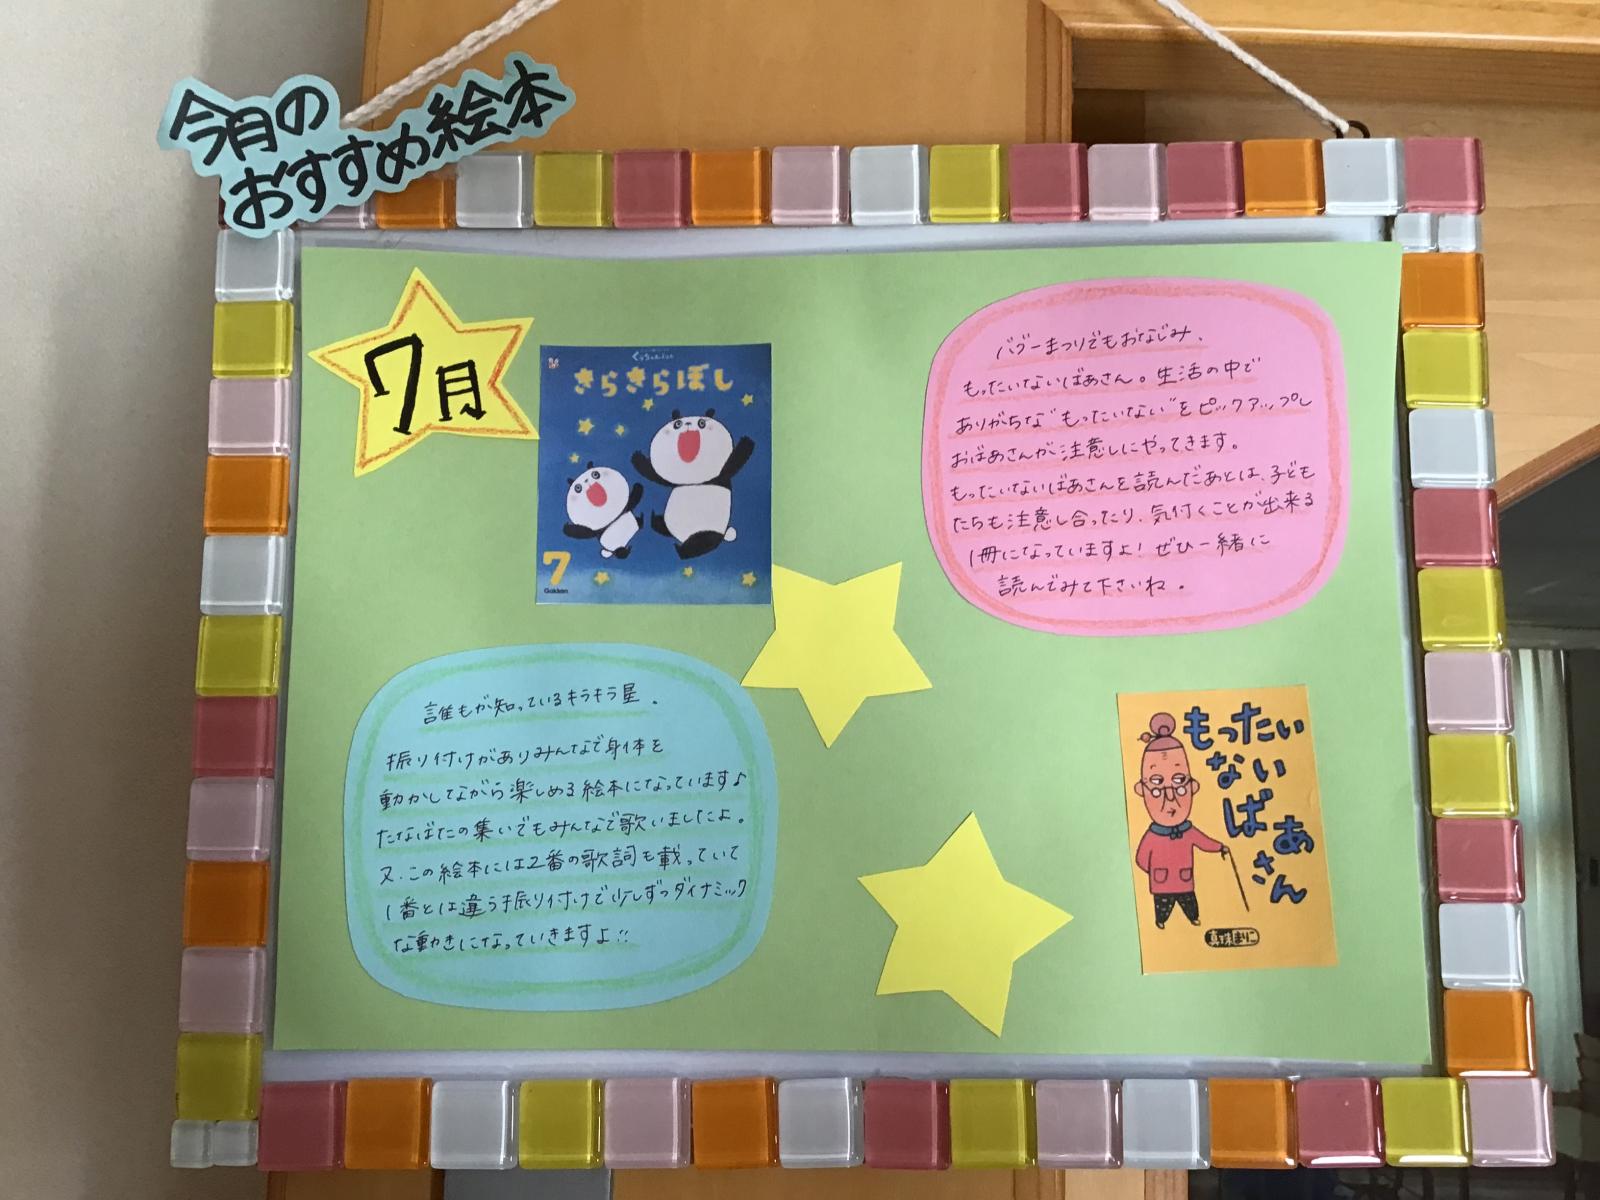 今月の
おすすめ絵本
7月
きらきらぼし
7
Gakken
誰もが知っているキラキラ星。
振り付けがありみんなで身体を
動かしながら楽しめる絵本になっています♪
たなばたの集いでもみんなで歌いましたよ。
又、この絵本には2番の歌詞も載っていて
1番とは違う振り付けで少しずつダイナミック
な動きになっていきますよ!!
バザーまつりでもおなじみ、
もったいないばあさん。生活の中で
ありがちな"もったいない"をピックアップし
おばあさんが注意しにやってきます。
もったいないばあさんを読んだあとは、子ども
たちも注意し合ったり、気付くことが出来る
1冊になっていますよ!ぜひ一緒に
読んでみて下さいね。
もったい
ない
ばあ
さん
真珠まりこ